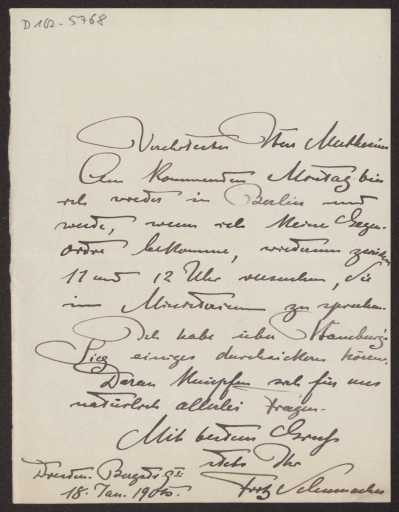 D 102-5768
Verehrtester Herr Muthesius
Am kommenden Montag bin
ich wieder in Berlin und
werde, wenn ich keine Gegen-
ordre bekomme, wiederum zwischen
11 und 12 Uhr versuchen, Sie
im Ministerium zu sprechen.
Ich habe über Hamburg's
Sieg einiges durchsickern hören.
Daran knüpfen sich für uns
natürlich allerlei Fragen.
Mit bestem Gruss
stets Ihr
Fritz Schumacher
Dresden.
18. Jan. 190